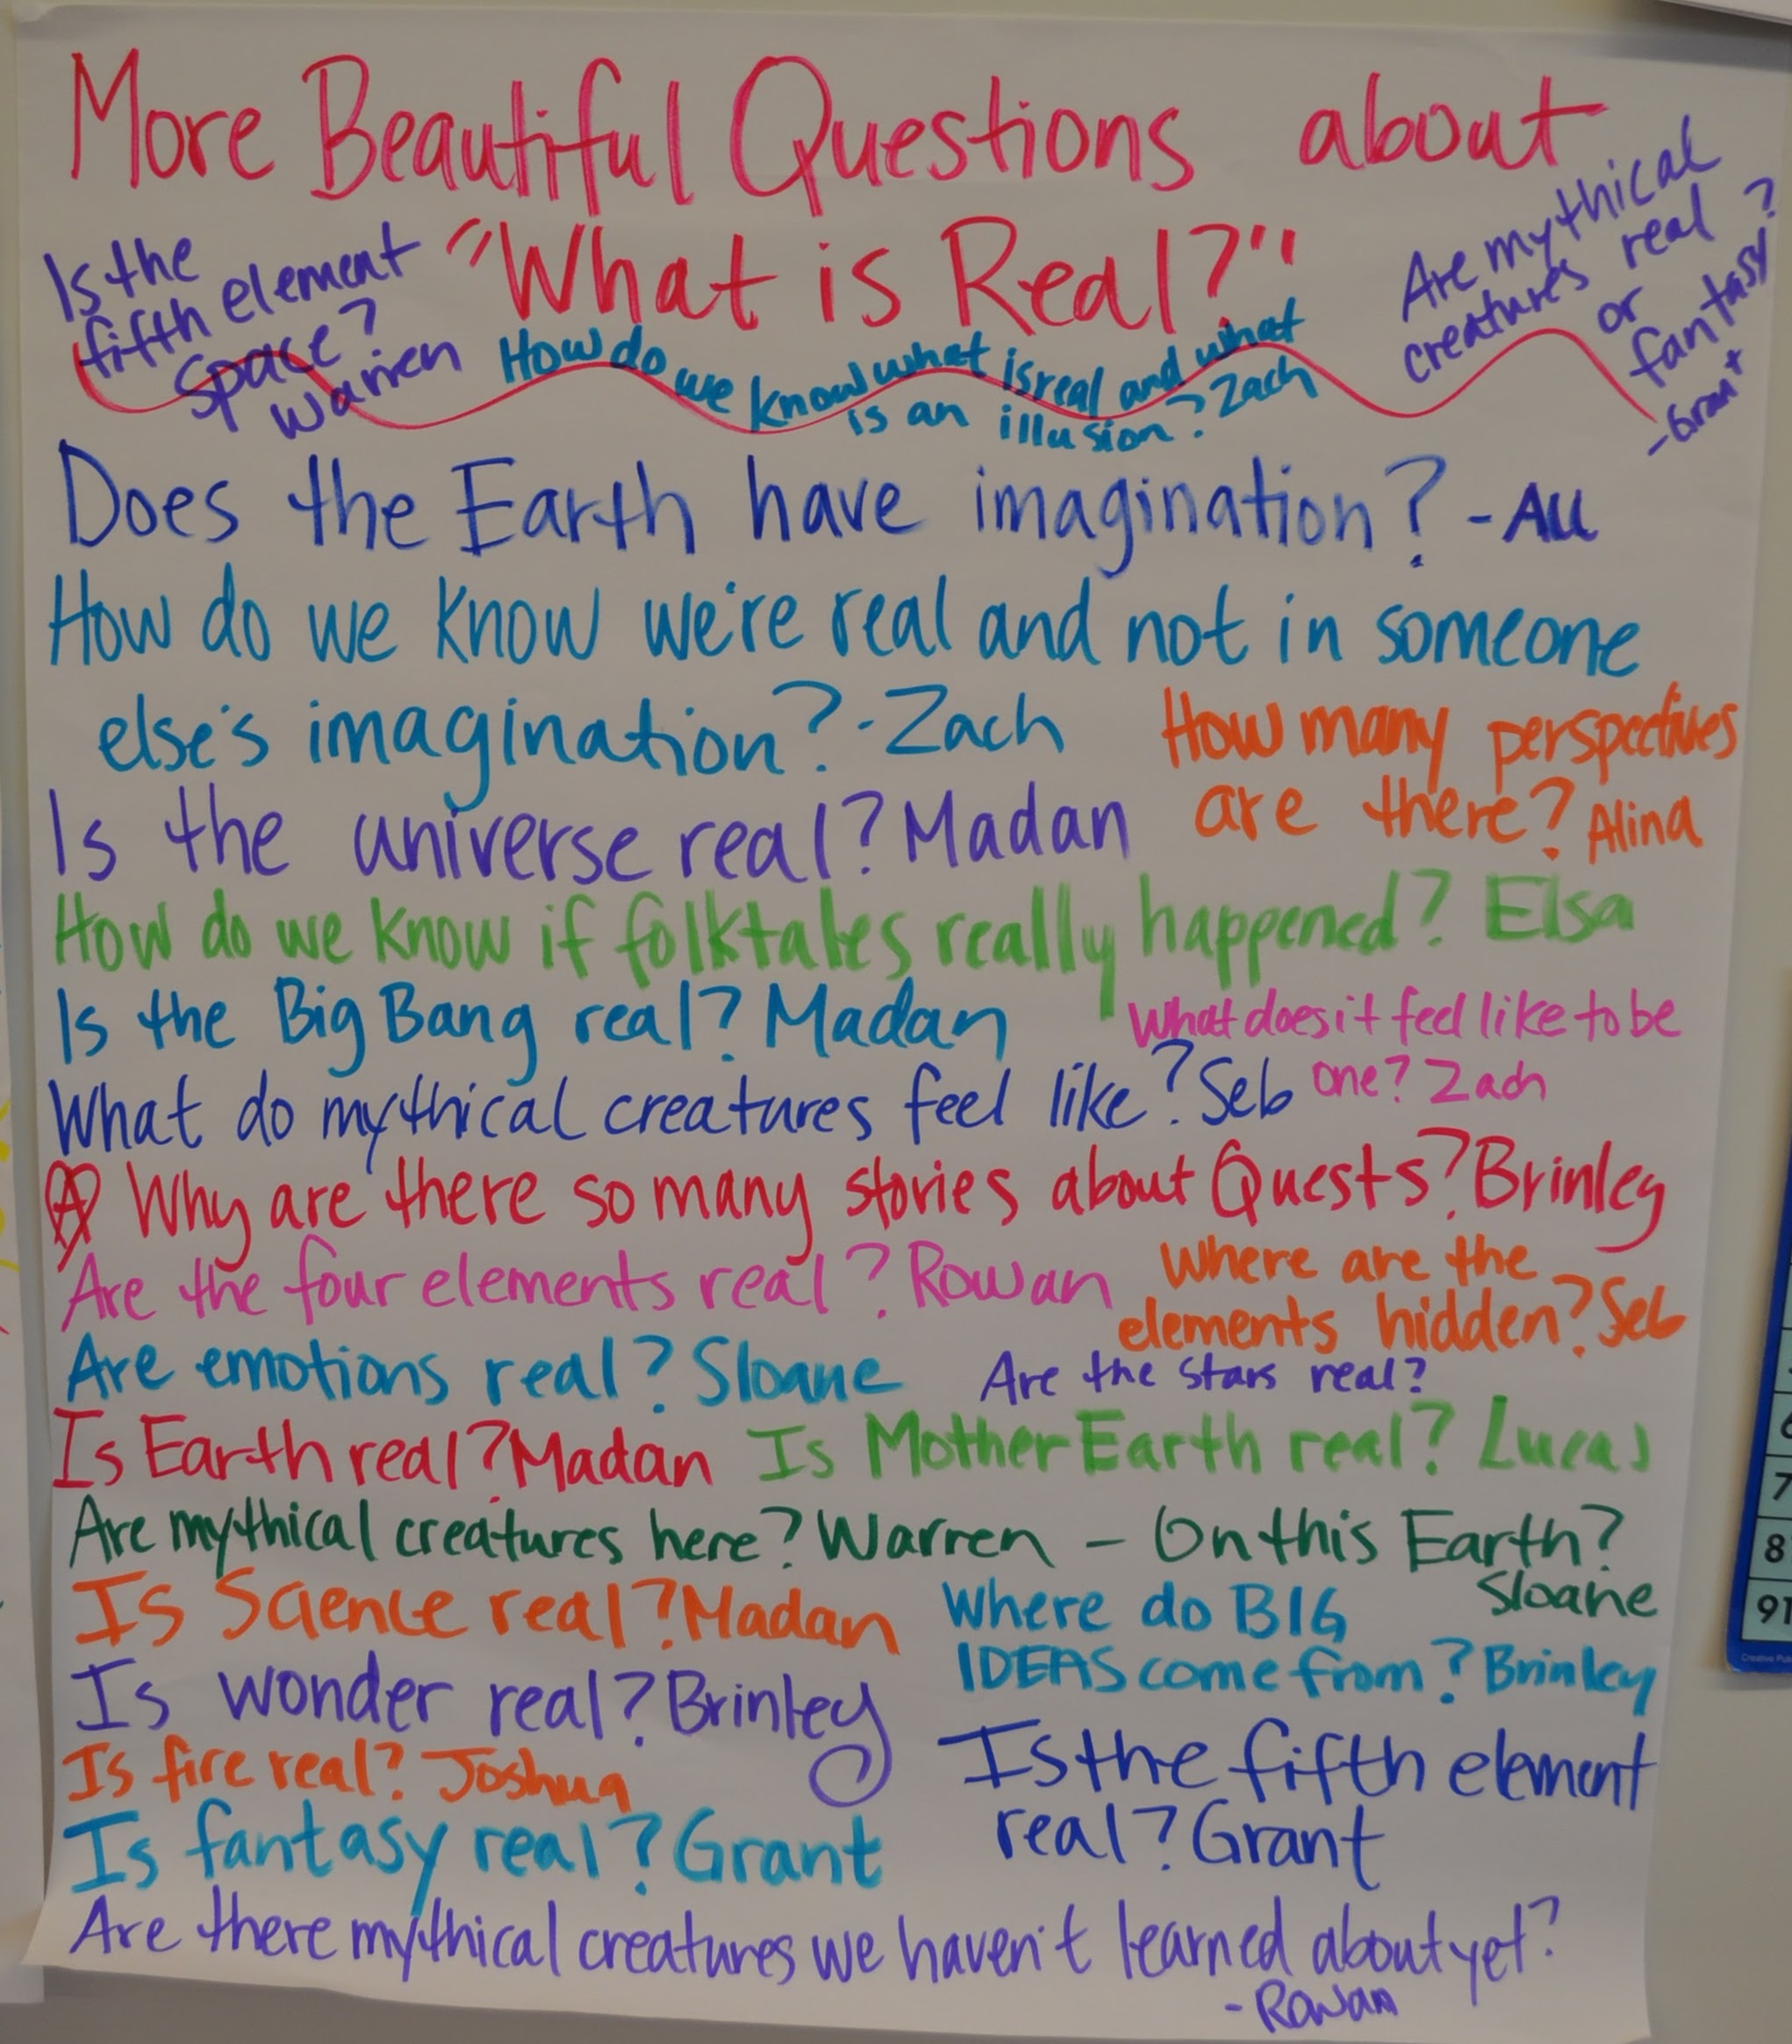 More Beautiful Questions about
"What is Real?"
Is the
fifth element
Space?
Warren
How do we know what is real and what
is an illusion? Zach
Are mythical
creatures real ?
or
fantasy
-Grant
Does the Earth have imagination? - ALL
How do we know we're real and not in someone
else's imagination? - Zach
How many perspectives
are there? Alina
Is the universe real? Madan
How do we know if folktales really happened? Elsa
Is the Big Bang real? Madan
What do mythical creatures feel like? Seb
What does it feel like to be
one? Zach
Why are there so many stories about Quests? Brinley
Are the four elements real? Rowan
Where are the
elements hidden? Seb
Are emotions real? Sloane
Are the stars real?
Is Earth real? Madan
Is Mother Earth real? Lucas
Are mythical creatures here? Warren - On this Earth?
Sloane
Is Science real? Madan
Where do BIG
IDEAS come from? Brinley
Is wonder real? Brinley
Is fire real? Joshua
Is the fifth element
real? Grant
Is fantasy real? Grant
Are there mythical creatures we haven't learned about yet?
- Rowan
7
8
91